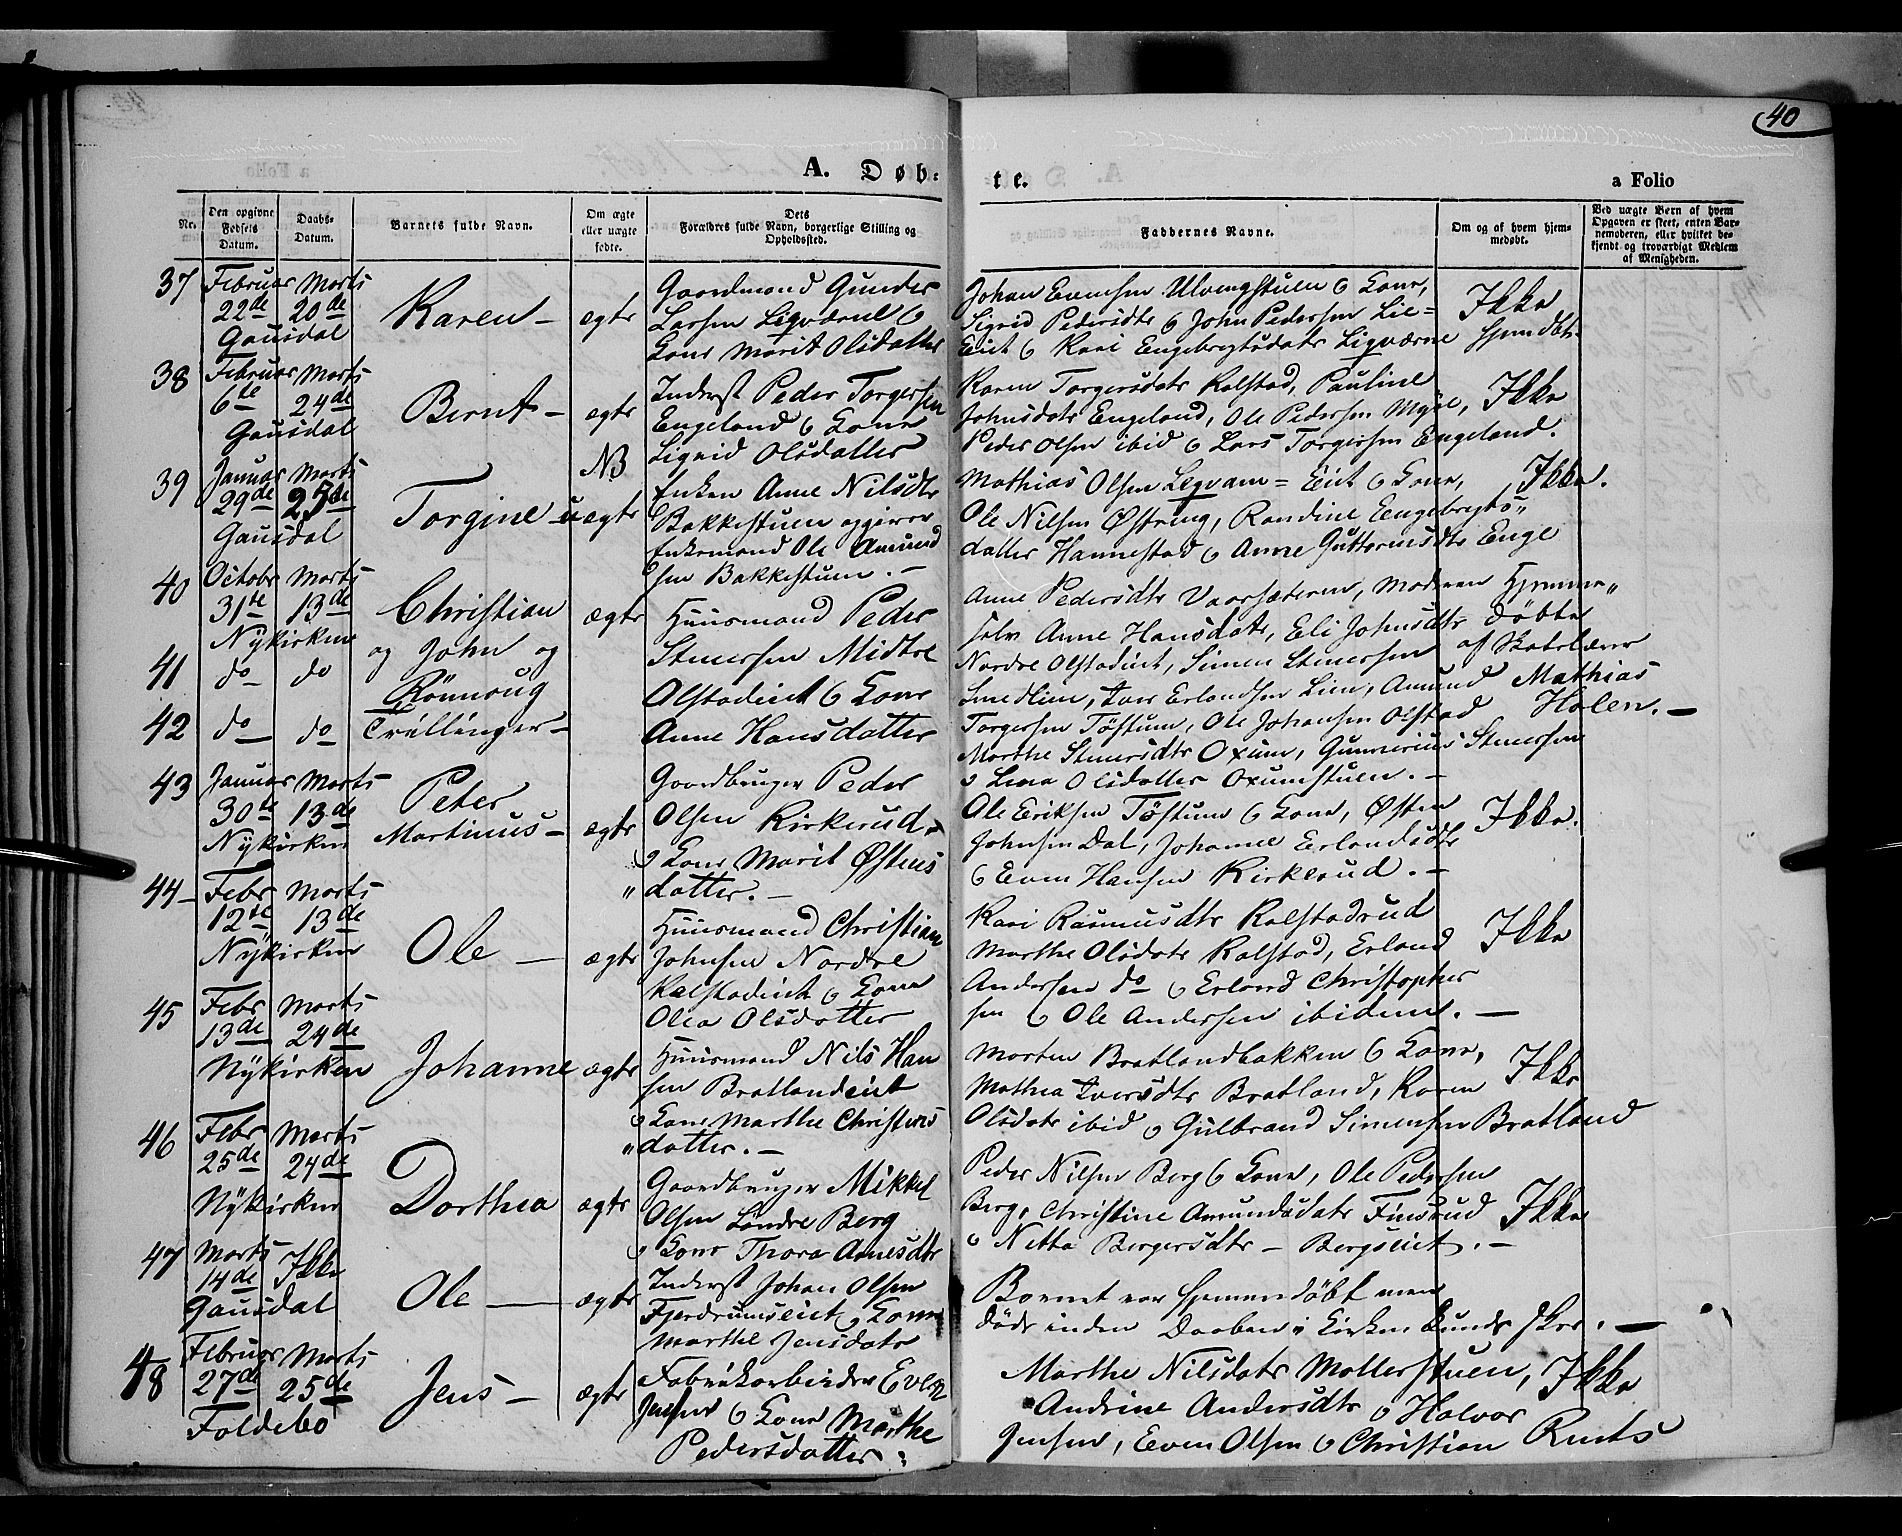 40
A. Døb-
te.
a Folio
Nr.
Den opgivne Fødsels Datum.
Daabs-Datum.
Barnets fulde Navn.
Om ægte eller uægte fødte.
Dets Forældres fulde Navn, borgerlige Stilling og Opholdssted.
Faddernes Navne.
Om og af hvem hjemmedøbt.
Ved uægte Børn af hvem Opgaven er skeet, enten Barnemoderen, eller hvilket bekjendt og troværdigt Medlem af Menigheden.
37 Februar Marts
22de 20de
Gausdal
Karen – ægte
Gaardmand Gunder
Larsen Liqværnl
Kone Marit Olsdatter
Johan Evensen Ulvengstuen & Kone,
Sigrid Pedersdtr & John Pedersen Lie=
Eiet & Kari Engebregtsdatr Liqværne
Ikke
hjemdbt.
38 Februar Marts
6te 24de
Gausdal
Bernt – ægte
Inderst Peder Torgersen
Engeland & Kone
Sigrid Olsdatter
Karen Torgersdatr Kalstad, Pauline
Johnsdatr Engeland, Ole Pedersen Myre,
Peder Olsen ibid & Lars Torgersen Engeland.
Ikke
39 Januar Marts
29de 25de
Gausdal
NB
Torgine – uægte
Enken Anne Nilsdtr
Bakkestuen opgiver
Enkemand Ole Amund
sen Bakkestuen. –
Mathias Olsen Legvam= Eiet & Kone,
Ole Nilsen Østring, Randine Engebregts"
datter Hannestad & Anne Guttormsdtr Enge
Ikke.
40 Octobr Marts
31te 13de
Nykirken
41 do do
42 do do
Christian
og John og
Rönnoug
Trillinger –
ægte
Huusmand Peder
Stenersen Midtre
Olstadeiet & Kone
Anne Hansdatter
Anne Pedersdtr Vaarsæteren, Moderen
selv Anne Hansdatr, Eli Johnsdtr
Nordre Olstadeiet, Simen Stenersen
Smedlien, Iver Erlandsen Lien, Amund
Torgersen Töstum, Ole Johansen Olstad
Marthe Stenersdtr Oxum, Gunnerius Stenersen
& Lena Olsdatter Oxumstuen. –
Hjemme"
döbte
af Skolelærer
Mathias
Holen. –
43 Januar Marts
30te 13de
Nykirken
Peter
Martinus – ægte
Gaardbruger Peder
Olsen Kirkerud
& Kone Marit Østens
" datter. –
Ole Eriksen Töstum & Kone, Østen
Johnsen Dal, Johanne Erlandsdtr
& Even Hansen Kirkerud. –
Ikke.
44 – Febr Marts
12te 13de
Nykirken
Ole – ægte
Huusmand Christian
Johnsen Nordre
Kalstadeiet & Kone
Olea Olsdatter
Kari Rasmusdtr Kalstadrud
Marthe Olsdatr Kalstad, Erland
Andersen do & Erland Christopher
sen & Ole Andersen ibidem. –
Ikke
45 Febr Marts
13de 24de
Nykirken
Johanne ægte
Huusmand Nils Han
sen Bratlandeiet
& Kone Marthe Christens
" datter. –
Morten Bratlandbakken & Kone,
Mathea Iversdtr Bratland, Karen
Olsdatr ibid & Gulbrand Simensen Bratland
Ikke
46 Febr Marts
25de 24de
Nykirken
Dorthea ægte
Gaardbruger Mikkel
Olsen Söndre Berg
& Kone Thora Arnesdtr
Peder Nilsen Berg & Kone, Ole Pedersen
Berg, Christine Amundsdatr Finsrud
& Netta Bergersdtr – Bergseiet. –
Ikke
47 Marts Ikke
14de
Gausdal
Ole – ægte
Inderst Johan Olsen
Fjerdrumseiet & Kone
Marthe Jensdatr
Barnet var hjemmedöbt men
döde inden Daaben i Kirken kunde skee. –
48 Februar Marts
27de 25de
Foldebo
Jens – ægte
Fabrikarbeider Even
Jensen & Kone Marthe
Pedersdatter.
Marthe Nilsdatr Mollerstuen,
Andrine Andersdtr & Halvor
Jensen, Even Olsen & Christian Ruuts
Ikke